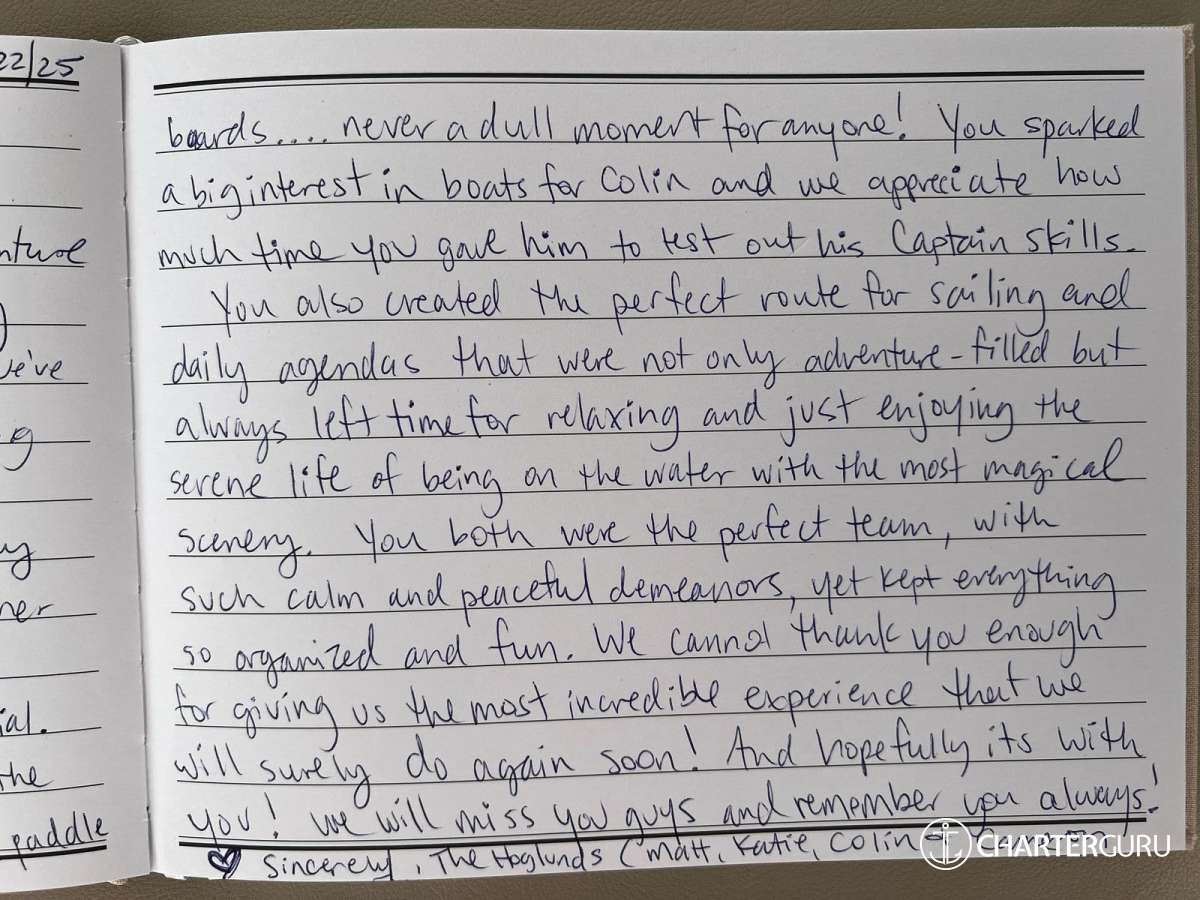 22/25
nture
)
ve've
g
y
ner
ial.
the
paddle
boards.... never a dull moment for anyone! You sparked
a big interest in boats for Colin and we appreciate how
much time you gave him to test out his Captain skills.
You also created the perfect route for sailing and
daily agendas that were not only adventure-filled but
always left time for relaxing and just enjoying the
serene life of being on the water with the most magical
scenery. You both were the perfect team, with
such calm and peaceful demeanors, yet kept everything
so organized and fun. We cannot thank you enough
for giving us the most incredible experience that we
will surely do again soon! And hopefully its with
you! We will miss you guys and remember you always!
Sincerely, The Hoglunds (Matt, Katie, Colin
CHARTERGURU